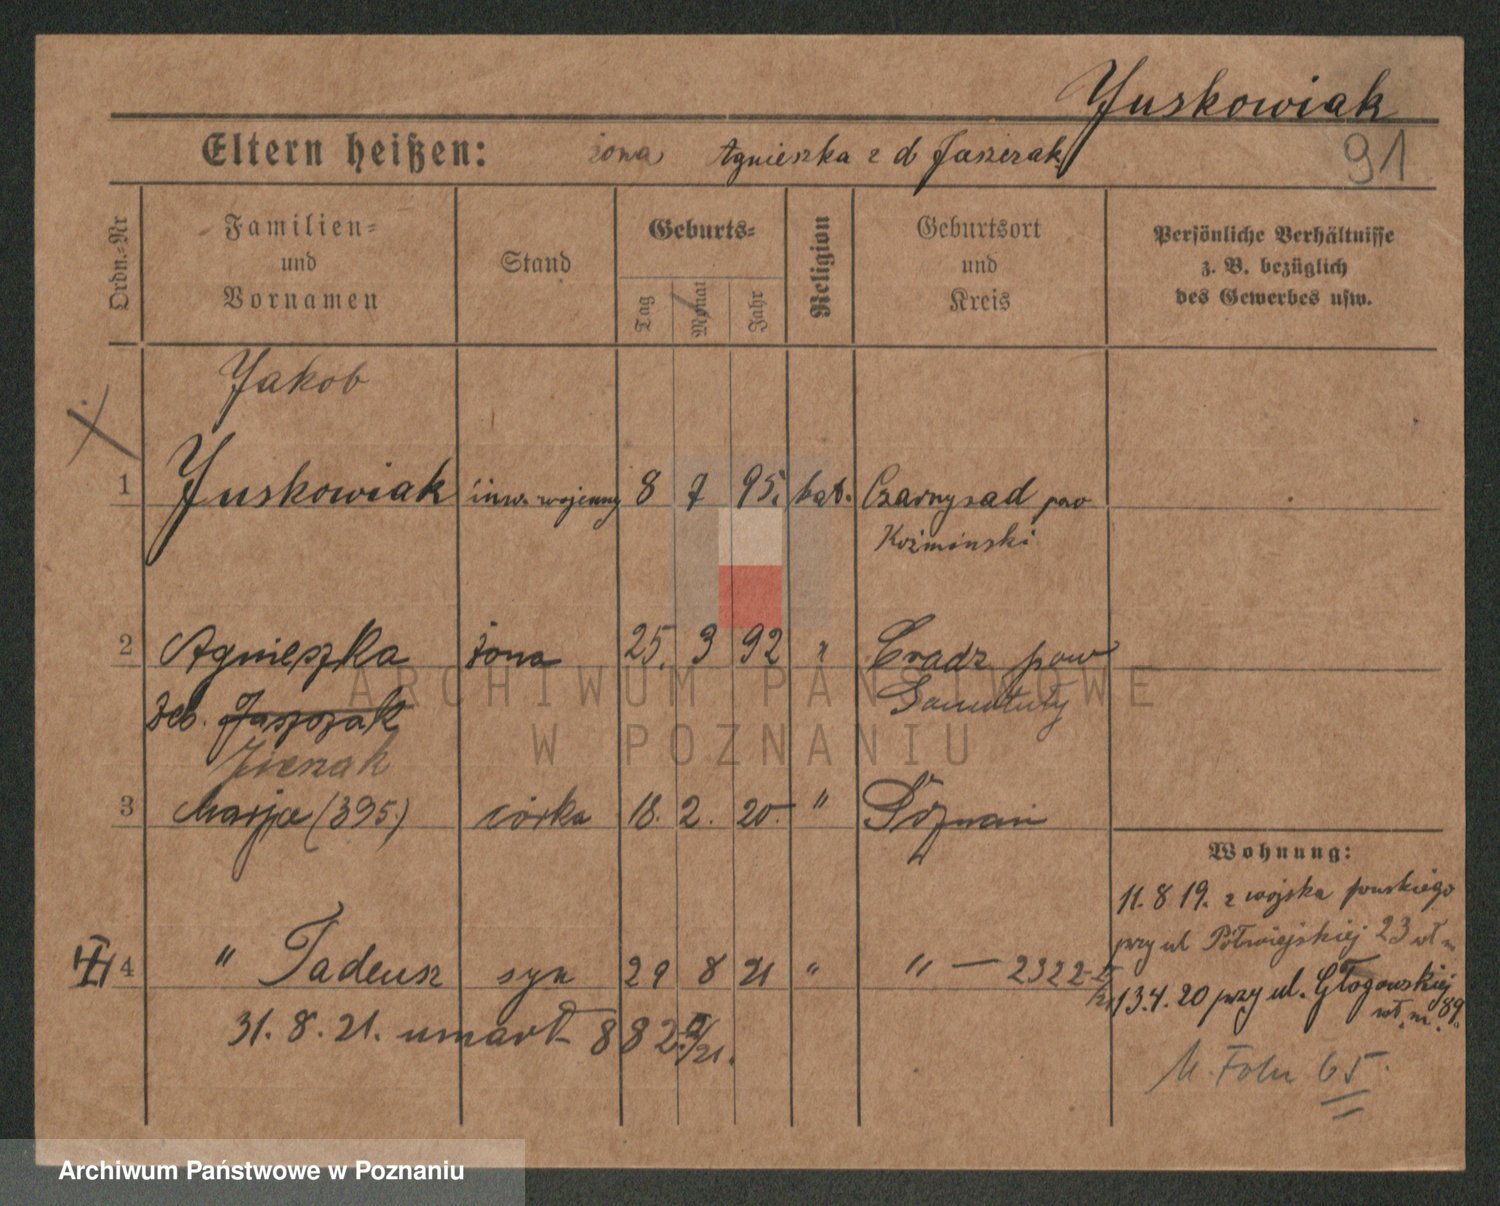 Juskowiak
91
Eltern heißen: żona Agnieszka z d Jaszczak
Ordn.-Nr
Familien= und Vornamen
Stand
Geburts=
Tag Monat Jahr
Religion
Geburtsort und Kreis
Persönliche Verhältnisse z. B. bezüglich des Gewerbes usw.
Jakob
1 Juskowiak inw. wojenny 8 7 95. kat. Czarnysad pow
Koźmiński
2 Agnieszka żona 25. 3 92 " pow
Jaszczak Szamotuły
3 Marja (395.) córka 18. 2. 20. " Poznań
Wohnung:
11. 8 19. z wojska pruskiego
przy ul Półwiejskiej 23
4 " Tadeusz syn 29 8 21 " " — 2322
13.4.20 przy ul. Głogowskiej
89.
31. 8. 21. umarł 882
65
ARCHIWUM PAŃSTWOWE
W POZNANIU
Archiwum Państwowe w Poznaniu